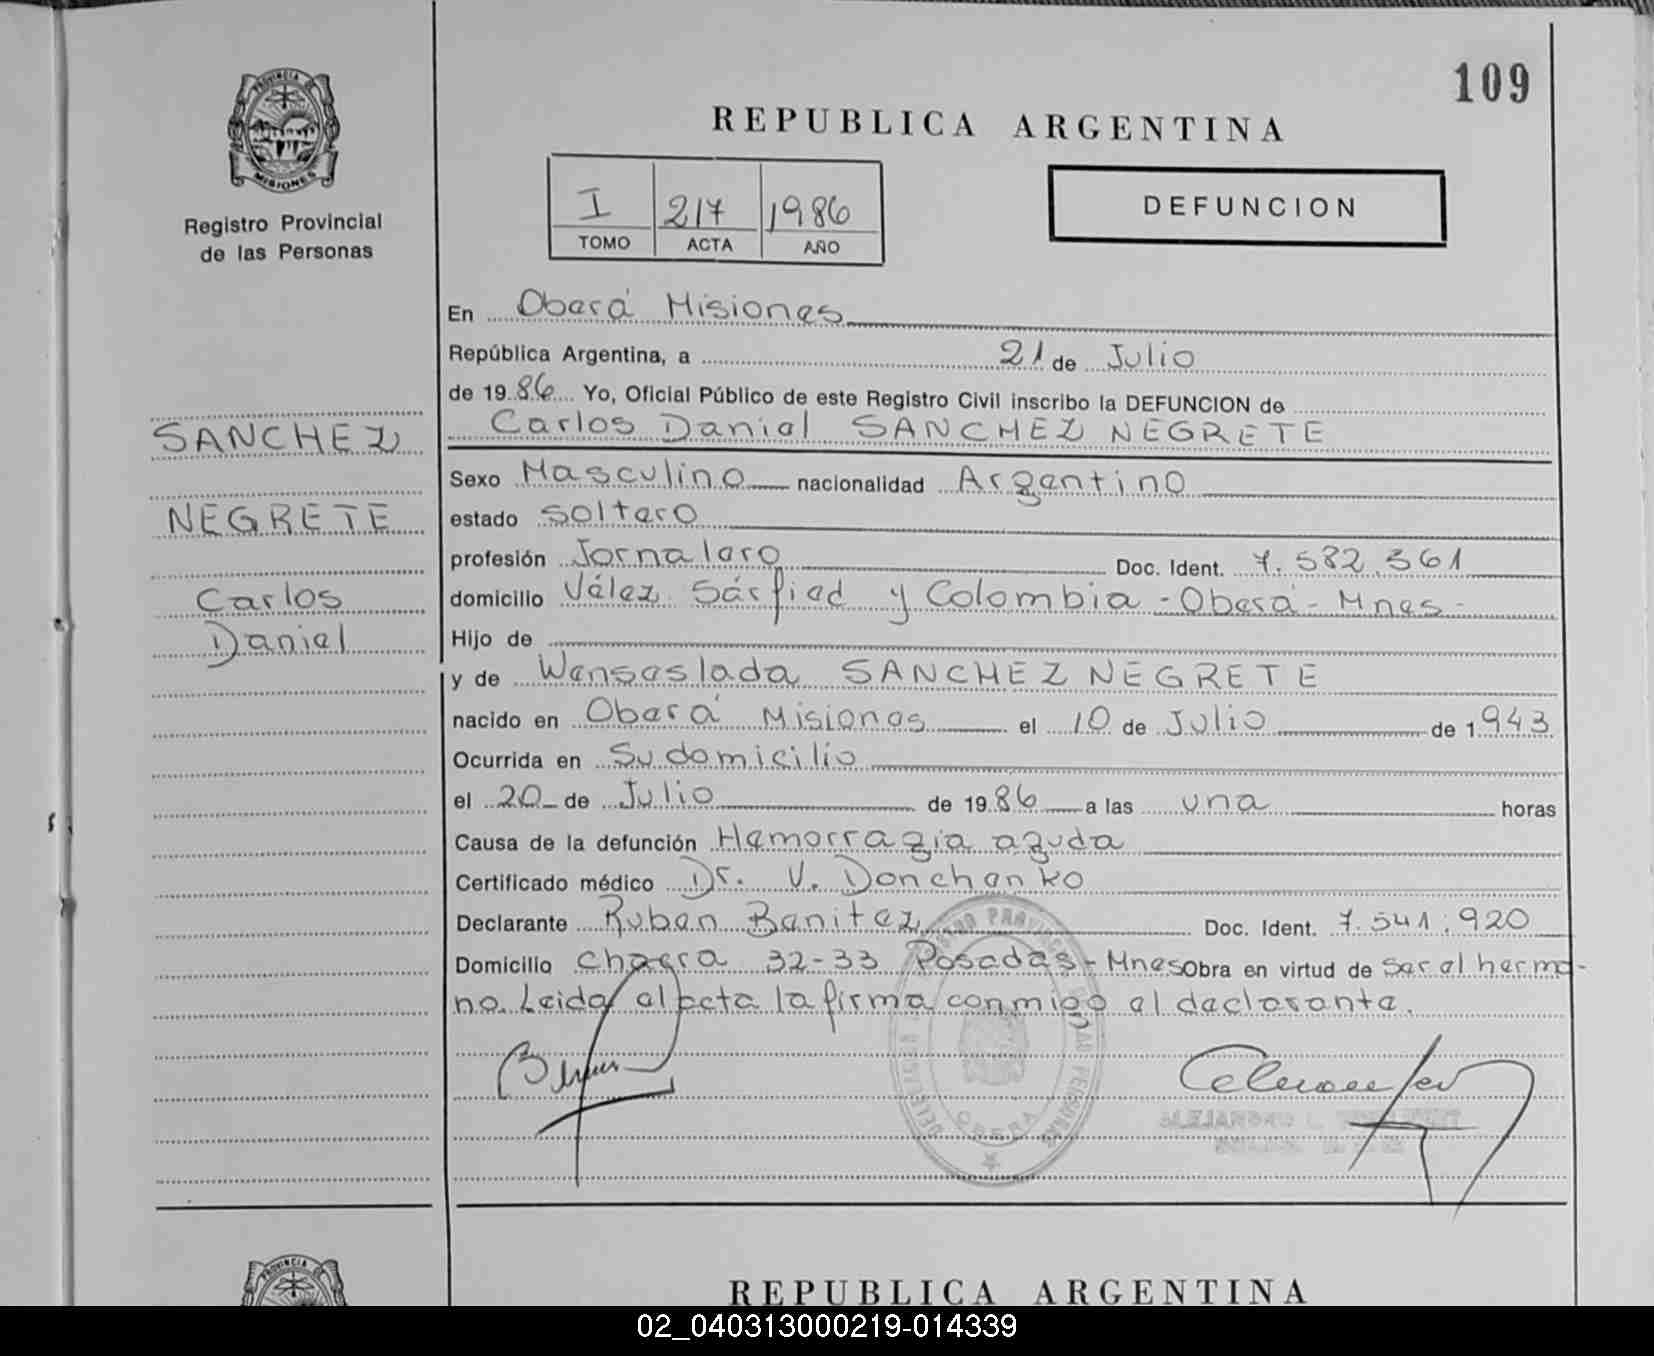 109
PROVINCIA DE
MISIONES
Registro Provincial
de las Personas
REPUBLICA ARGENTINA
I 217 1986
TOMO ACTA AÑO
DEFUNCION
En Oberá Misiones
República Argentina, a 21 de Julio
de 1986 Yo, Oficial Público de este Registro Civil inscribo la DEFUNCION de
Carlos Daniel SANCHEZ NEGRETE
SANCHEZ
NEGRETE
Carlos
Daniel
Sexo Masculino nacionalidad Argentino
estado soltero
profesión Jornalero Doc. Ident. 7.582.361
domicilio Vélez Sársfied y Colombia - Oberá - Mnes -
Hijo de
y de Wenseslada SANCHEZ NEGRETE
nacido en Oberá Misiones el 10 de Julio de 1943
Ocurrida en Su domicilio
el 20 de Julio de 1986 a las una horas
Causa de la defunción Hemorragia aguda
Certificado médico Dr. V. Donchenko
Declarante Ruben Benitez Doc. Ident. 7.541.920
Domicilio Chacra 32-33 Posadas - Mnes Obra en virtud de ser el herma-
no. Leida el acta la firma conmigo el declarante.
OBERA
PROVINCIA
REPUBLICA ARGENTINA
02_040313000219-014339